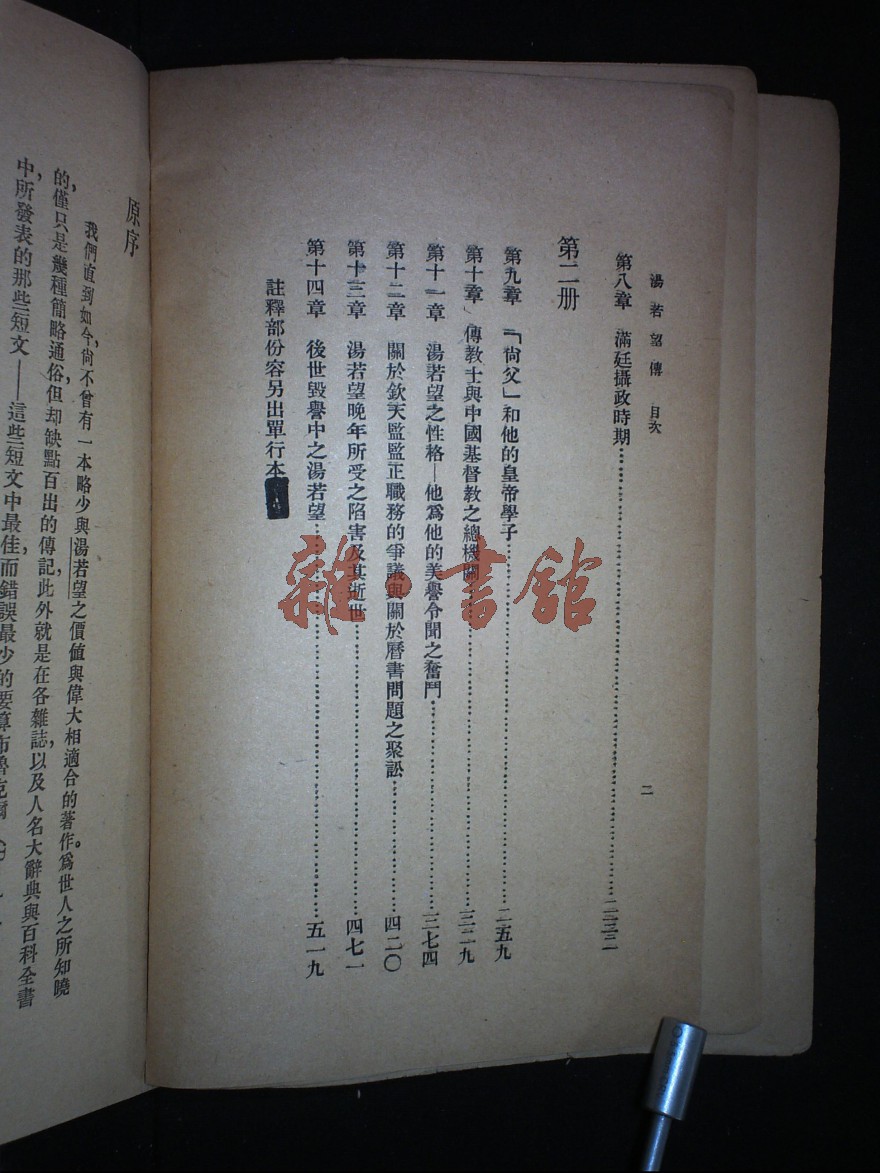 湯若望傳 目次
二
第八章 滿廷攝政時期……二三二
第二册
第九章 「尙父」和他的皇帝學子……二五九
第十章 傳教士與中國基督教之總機關……三二九
第十一章 湯若望之性格—他爲他的美譽令聞之奮鬥……三七四
第十二章 關於欽天監監正職務的爭議與關於曆書問題之聚訟……四二〇
第十三章 湯若望晚年所受之陷害及其逝世……四七一
第十四章 後世毀譽中之湯若望……五一九
註釋部份容另出單行本
原序
我們直到如今,尙不曾有一本略少與湯若望之價値與偉大相適合的著作。爲世人之所知曉
的,僅只是幾種簡略通俗,但却缺點百出的傳記,此外就是在各雜誌,以及人名大辭典與百科全書
中,所發表的那些短文——這些短文中最佳,而錯誤最少的要算布魯克爾
雜·書館